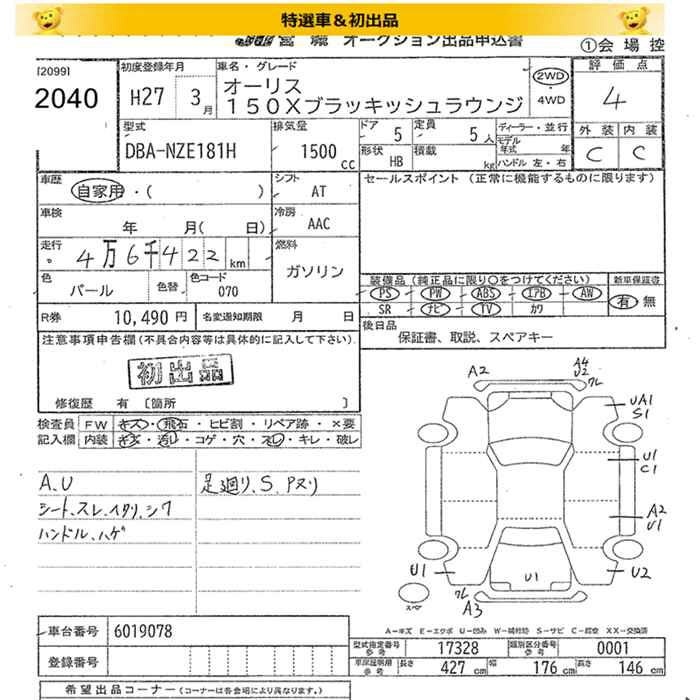 特選車＆初出品
オークション出品申込書
①会 場 控
[2099]
2040
初度登録年月
H27 3月
車名・グレード
オーリス
150Xブラッキッシュラウンジ
2WD
・
4WD
評価点
4
外装 内装
C C
型式
DBA-NZE181H
排気量
1500 cc
ドア 5
定員 5人
形状 HB
積載 kg
ディーラー・並行
モデル年式 年
ハンドル 左・右
車歴
自家用・( )
シフト AT
車検
年 月( 日)
冷房 AAC
走行
4万6千422km
燃料
ガソリン
色 パール
色替
色コード 070
R券 10,490 円
名変通知期限 月 日
セールスポイント (正常に機能するものに限ります)
装備品 (純正品に限り○をつけてください)
PS PW ABS エアB AW
SR ナビ TV カワ
新車保証書
有 無
後日品
保証書、取説、スペアキー
注意事項申告欄(不具合内容等は具体的に記入して下さい)
初出品
修復歴 有 [箇所 ]
検査員記入欄
FW キズ・飛石・ヒビ割・リペア跡・×要
内装 キズ・汚レ・コゲ・穴・スレ・キレ・破レ
A、U
シート、スレ、イタリ、シワ
ハンドル、ハゲ
足廻リ、S、Pヌリ
A2
A4
U2
クレ
UA1
S1
U1
C1
A2
U1
U1
U1
U2
クレ
A3
スペア
A－キズ E－エクボ U－凹み W－補修跡 S－サビ C－腐食 XX－交換済
車台番号 6019078
登録番号
型式指定番号 参考 17328
類別区分番号 参考 0001
車庫証明用 参考 長さ 427 cm 幅 176 cm 高さ 146 cm
希望出品コーナー (コーナーは各会場により異なります。)